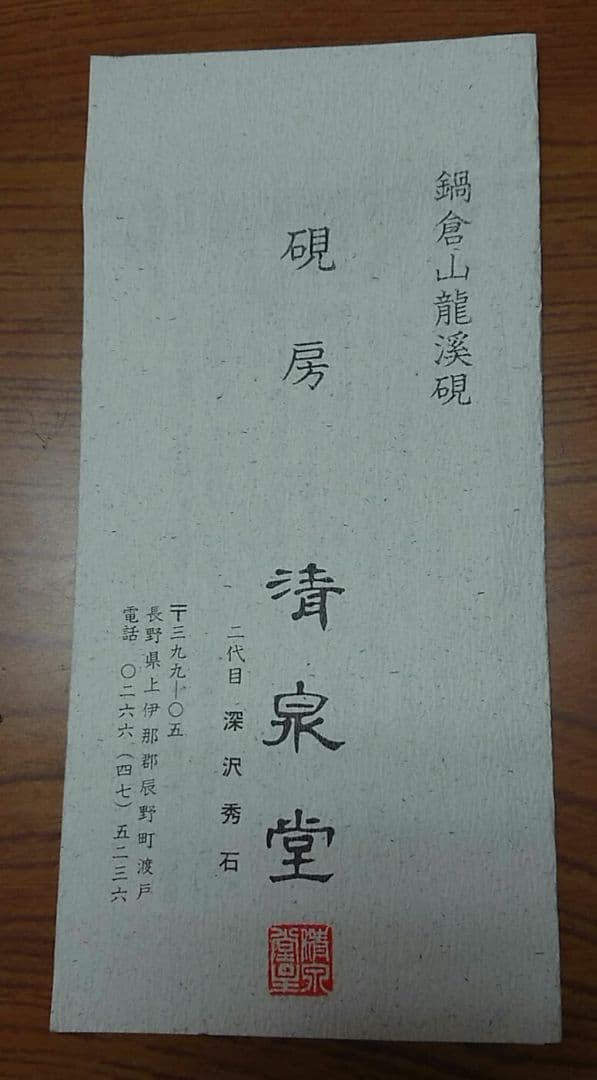 鍋倉山龍溪硯
硯房 清泉堂
二代目 深沢秀石
〒三九九―〇五
長野県上伊那郡辰野町渡戸
電話 〇二六六(四七)五二三六
清泉堂